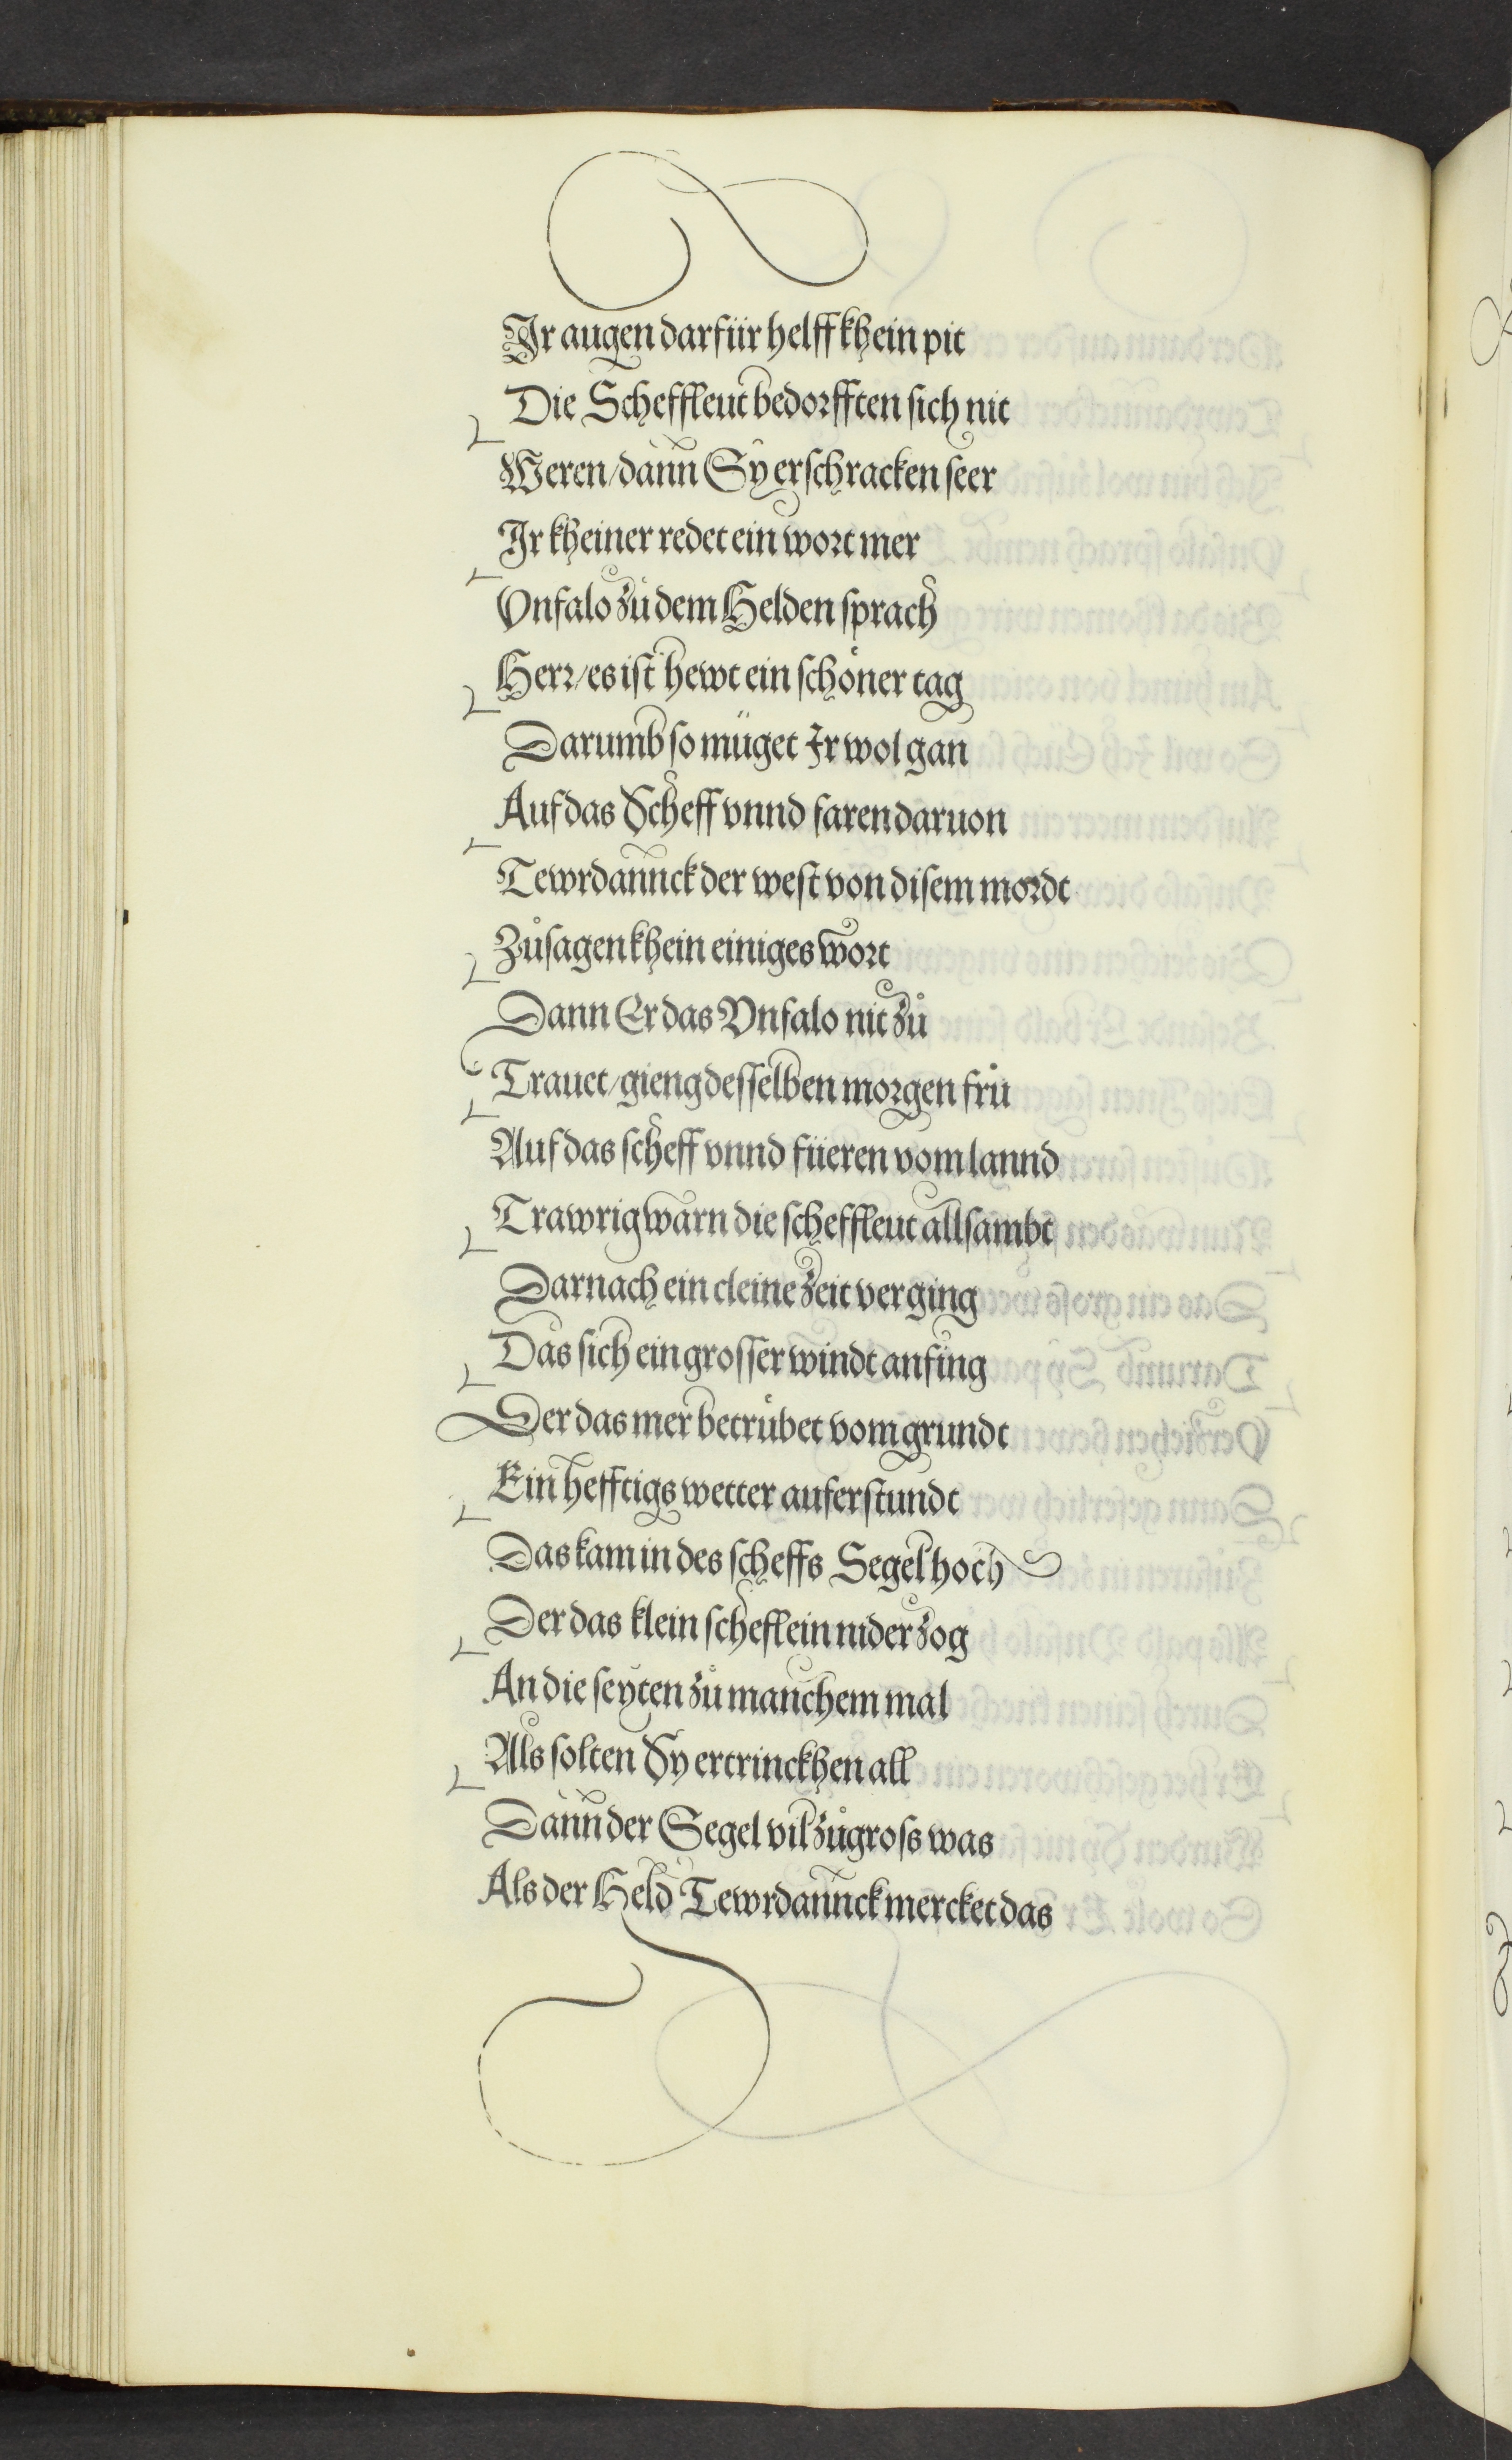 Ir augen darfür helff khein pit
Die Scheffleut bedorfften sich nit
Weren/dann Sy erschracken seer
Ir kheiner redet ein wort mer
Vnfalo zů dem Helden sprach
Herr/es ist hewt ein schöner tag
Darumb so müget Ir wol gan
Auf das Scheff vnnd faren daruon
Tewrdannck der west von disem mordt
Zůsagen khein einiges wort
Dann Er das Vnfalo nit zů
Trauet/gieng desselben morgen frů
Auf das scheff vnnd füeren vom lannd
Trawrig warn die scheffleut allsambt
Darnach ein cleine zeit verging
Das sich ein grosser windt anfing
Der das mer betrůbet vom grundt
Ein hefftigs wetter auferstundt
Das kam in des scheffs Segel hoch
Der das klein scheflein nider zog
An die seyten zů manchem mal
Als solten Sy ertrinckhen all
Dann der Segel vil zůgross was
Als der Held Tewrdannck mercket das